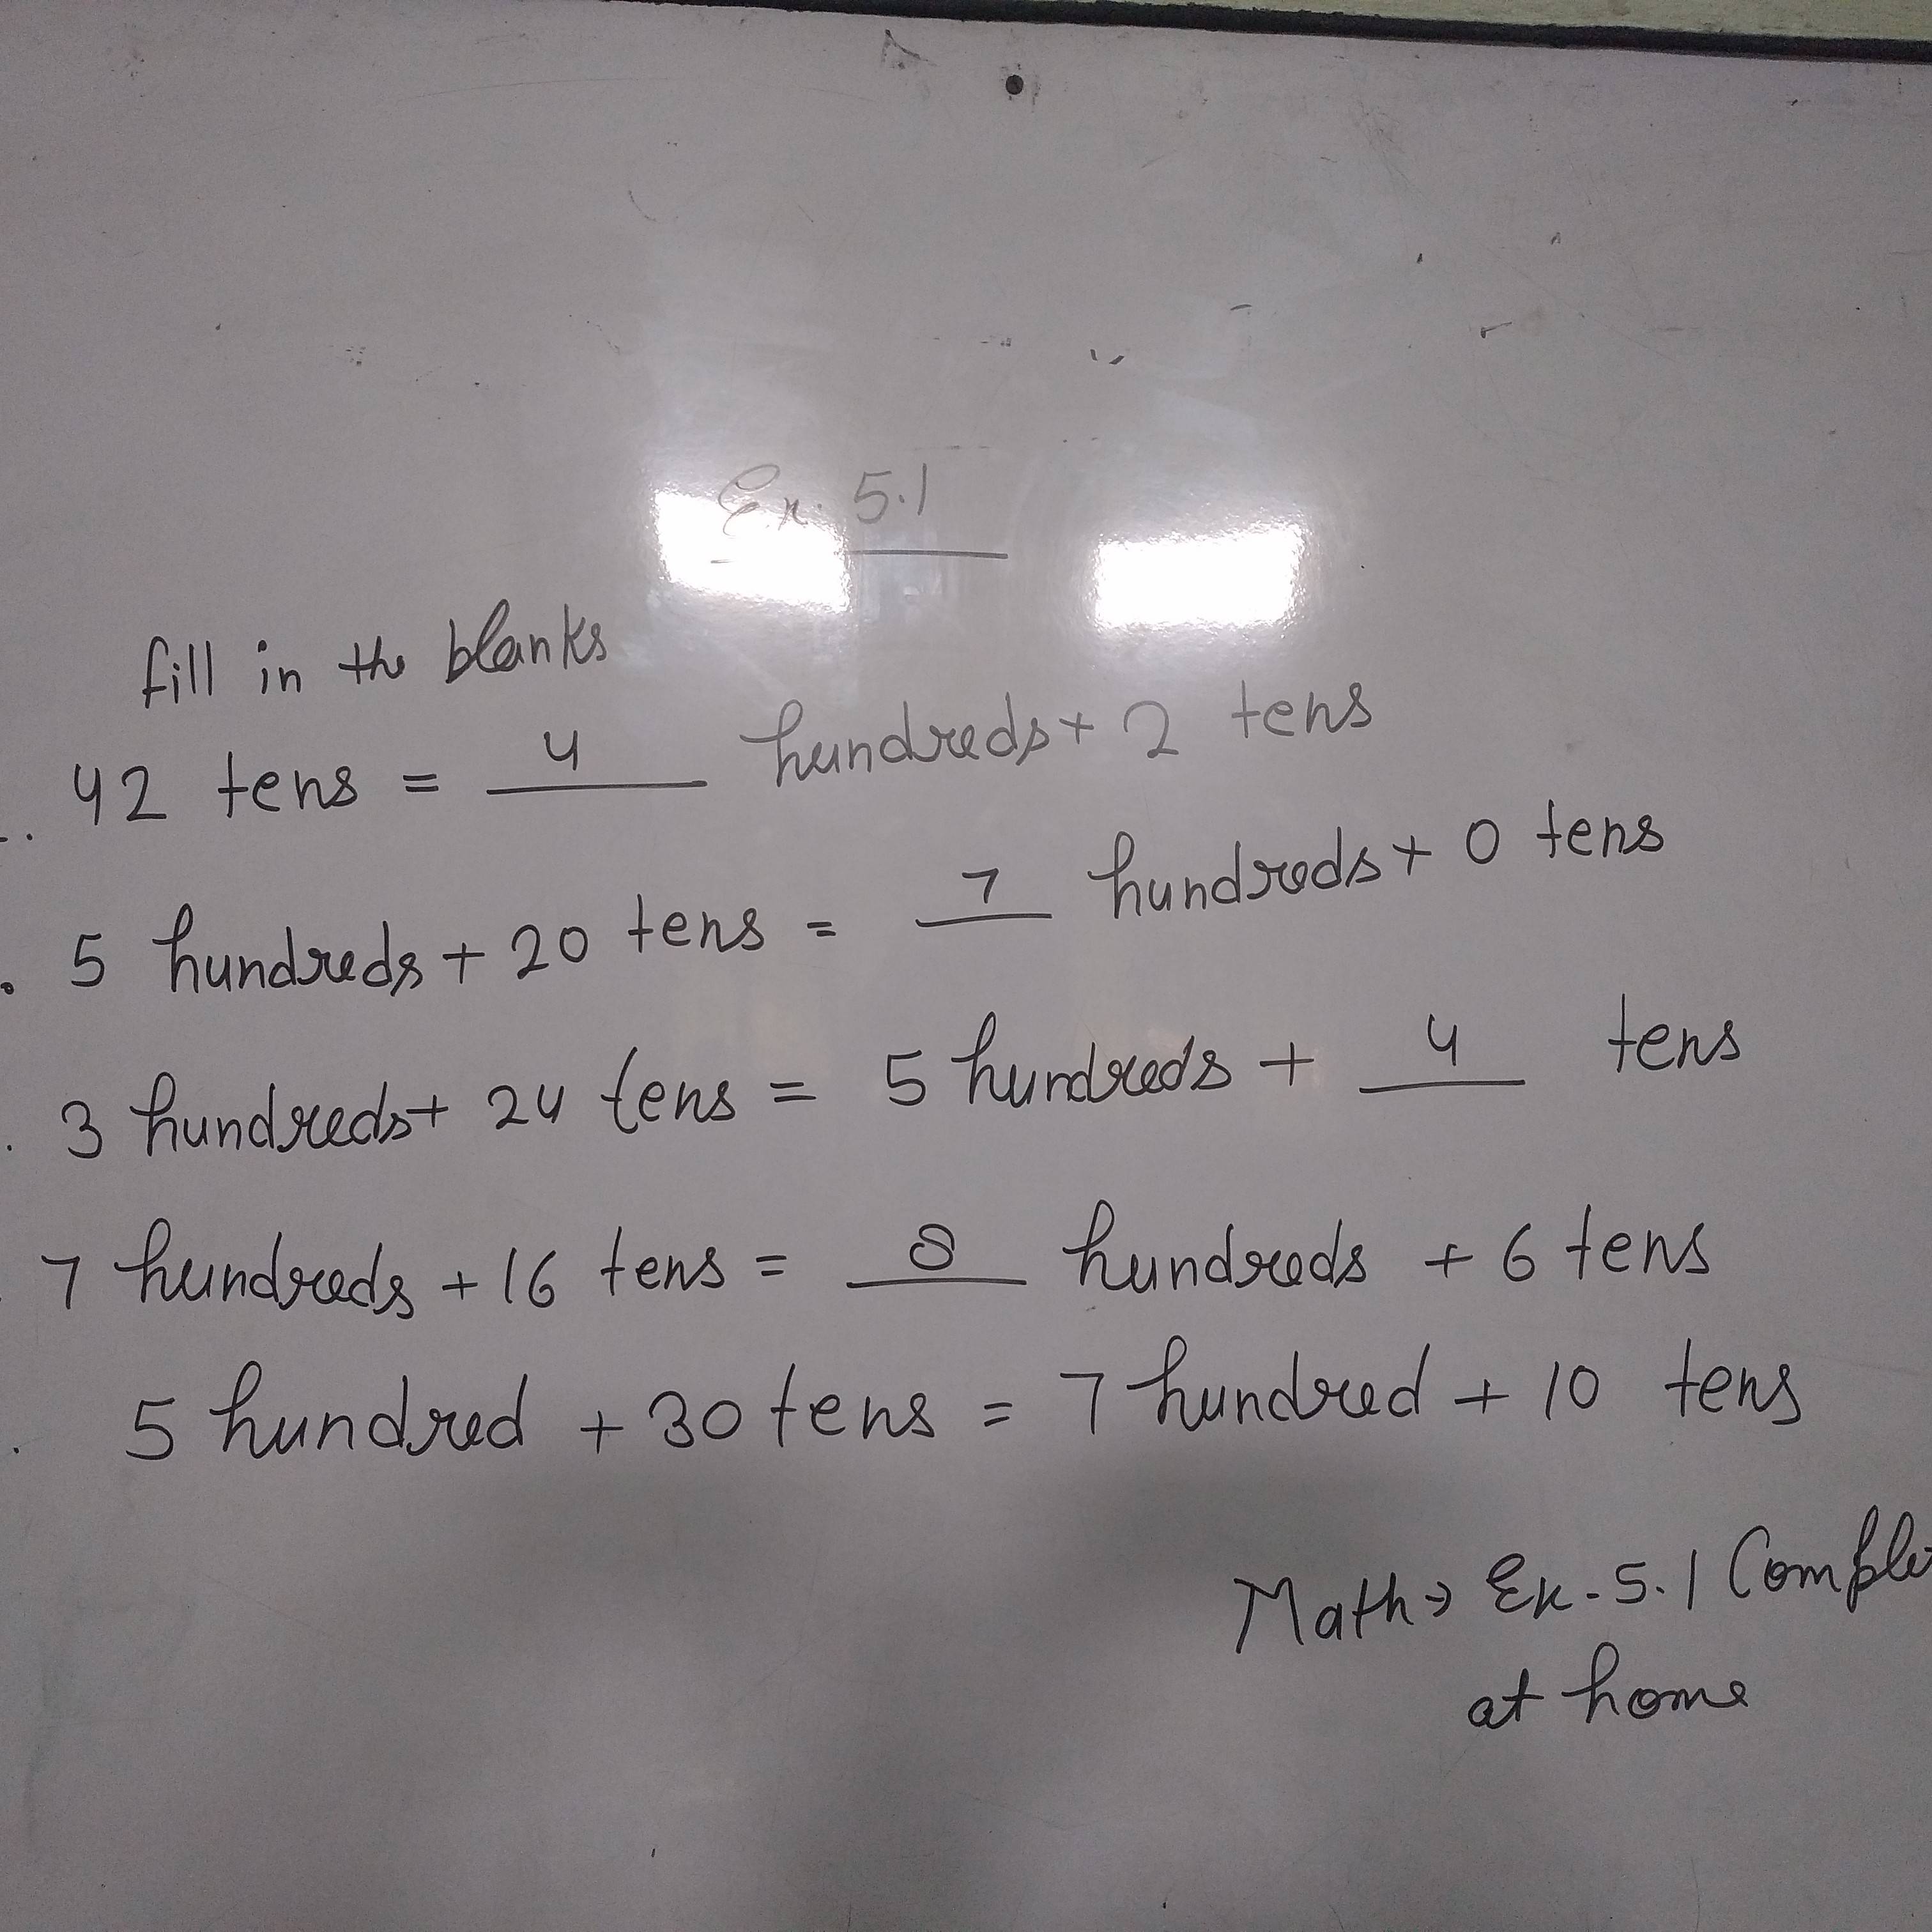 Ex. 5.1
fill in the blanks
42 tens = 4 hundreds + 2 tens
5 hundreds + 20 tens = 7 hundreds + 0 tens
3 hundreds + 24 tens = 5 hundreds + 4 tens
7 hundreds + 16 tens = 8 hundreds + 6 tens
5 hundred + 30 tens = 7 hundred + 10 tens
Math → Ex - 5.1 Comple
at home